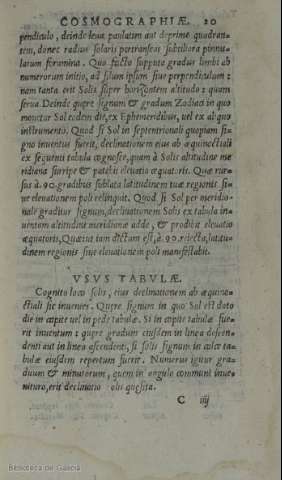 COSMOGRAPHIÆ. 20
pendiculo, deinde leua paulatim aut deprime quadran-
tem, donec radius solaris pertranseat subtiliora pinnu-
larum foramina. Quo facto supputa gradus limbi ab
numerorum initio, ad filum ipsum siue perpendiculum:
nam tanta erit Solis super horizontem altitudo: quam
serua. Deinde quære signum & gradum Zodiaci in quo
mouetur Sol eodem die, ex Ephemeridibus, vel ex abquo
instrumento. Quod si Sol in septentrionali quopiam si-
gno inuentus fuerit, declinationem eius ab æquinoctiali
ex sequenti tabula cognosce, quam à Solis altitudine me
ridiana surripe & patebit eleuatio æquatoris. Quæ rur-
sus à .90. gradibus sublata latitudinem tuæ regionis si-
ue eleuationem poli relinquit. Quod si Sol per meridio-
nale graditur signum, declinationem Solis ex tabula in-
uentam altitudini meridianæ adde, & prodibit eleuatio
æquatoris, Quæ iam dictum est, à .90. reiecta, latitu-
dinem regionis siue eleuationem poli manifestabit.
VSVS TABVLÆ.
Cognito loco solis, eius declinationem ab æquino-
ctiali sic inuenies. Quære signum in quo Sol est dato
die in capite vel in pede tabulæ. Si in capite tabulæ fue-
rit inuentum: quære gradum eiusdem in linea descen-
denti aut in linea ascendenti, si solis signum in calce ta-
bulæ eiusdem repertum fuerit. Numerus igitur gra-
duum & minutorum, quem in angulo communi inue-
nituro, erit declinatio olis quæsita.
C iiij
Biblioteca de Galicia